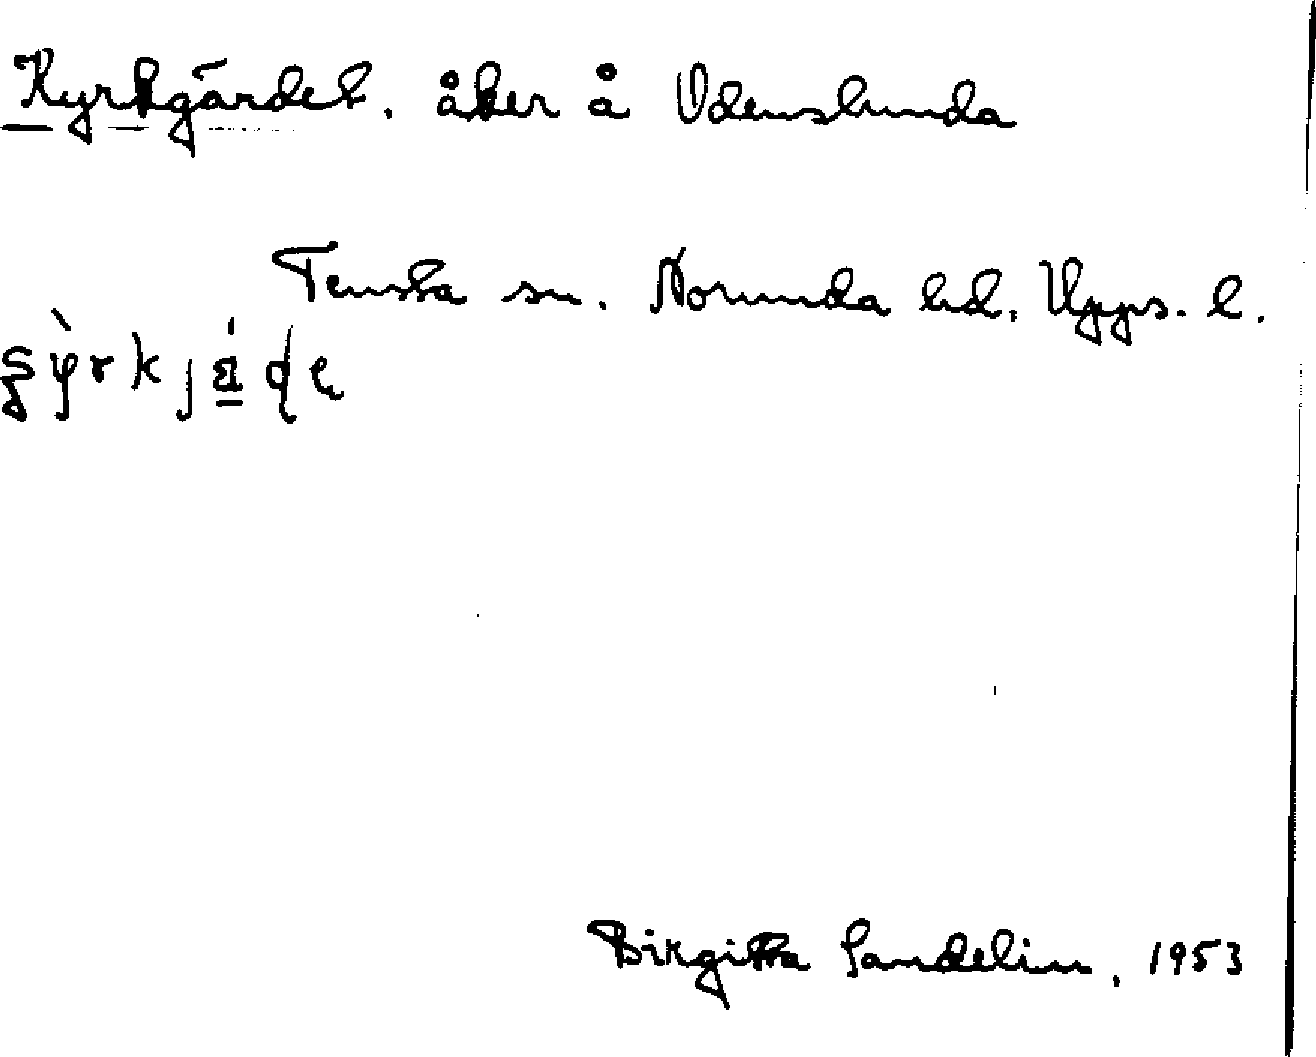 Kyrkgärdet. åker å Odenslunda
Tenska sn. Norunda hd. Upps. l.
Birgitta Sandelin, 1953